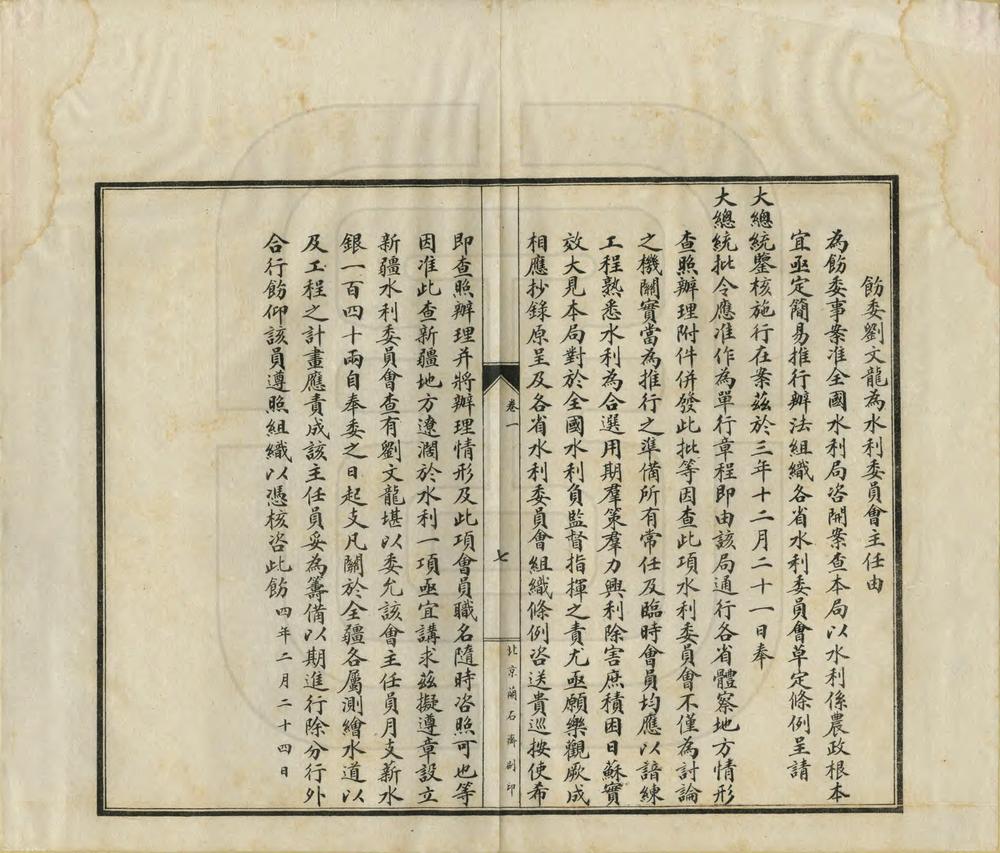 飭委劉文龍為水利委員會主任由
為飭委事案准全國水利局咨開案查本局以水利係農政根本
宜亟定簡易推行辦法組織各省水利委員會草定條例呈請
大總統鑒核施行在案茲於三年十二月二十一日奉
大總統批令應准作為單行章程即由該局通行各省體察地方情形
查照辦理附件併發此批等因查此項水利委員會不僅為討論
之機關實當為推行之準備所有常任及臨時會員均應以諳練
工程熟悉水利為合選用期羣策羣力興利除害庶積困日蘇實
效大見本局對於全國水利負監督指揮之責尤亟願樂觀厥成
相應抄錄原呈及各省水利委員會組織條例咨送貴巡按使希
卷一
七
北京蘭石齋刷印
即查照辦理并將辦理情形及此項會員職名隨時咨照可也等
因准此查新疆地方遼濶於水利一項亟宜講求茲擬遵章設立
新疆水利委員會查有劉文龍堪以委允該會主任員月支薪水
銀一百四十兩自奉委之日起支凡關於全疆各屬測繪水道以
及工程之計畫應責成該主任員妥為籌備以期進行除分行外
合行飭仰該員遵照組織以憑核咨此飭 四年二月二十四日